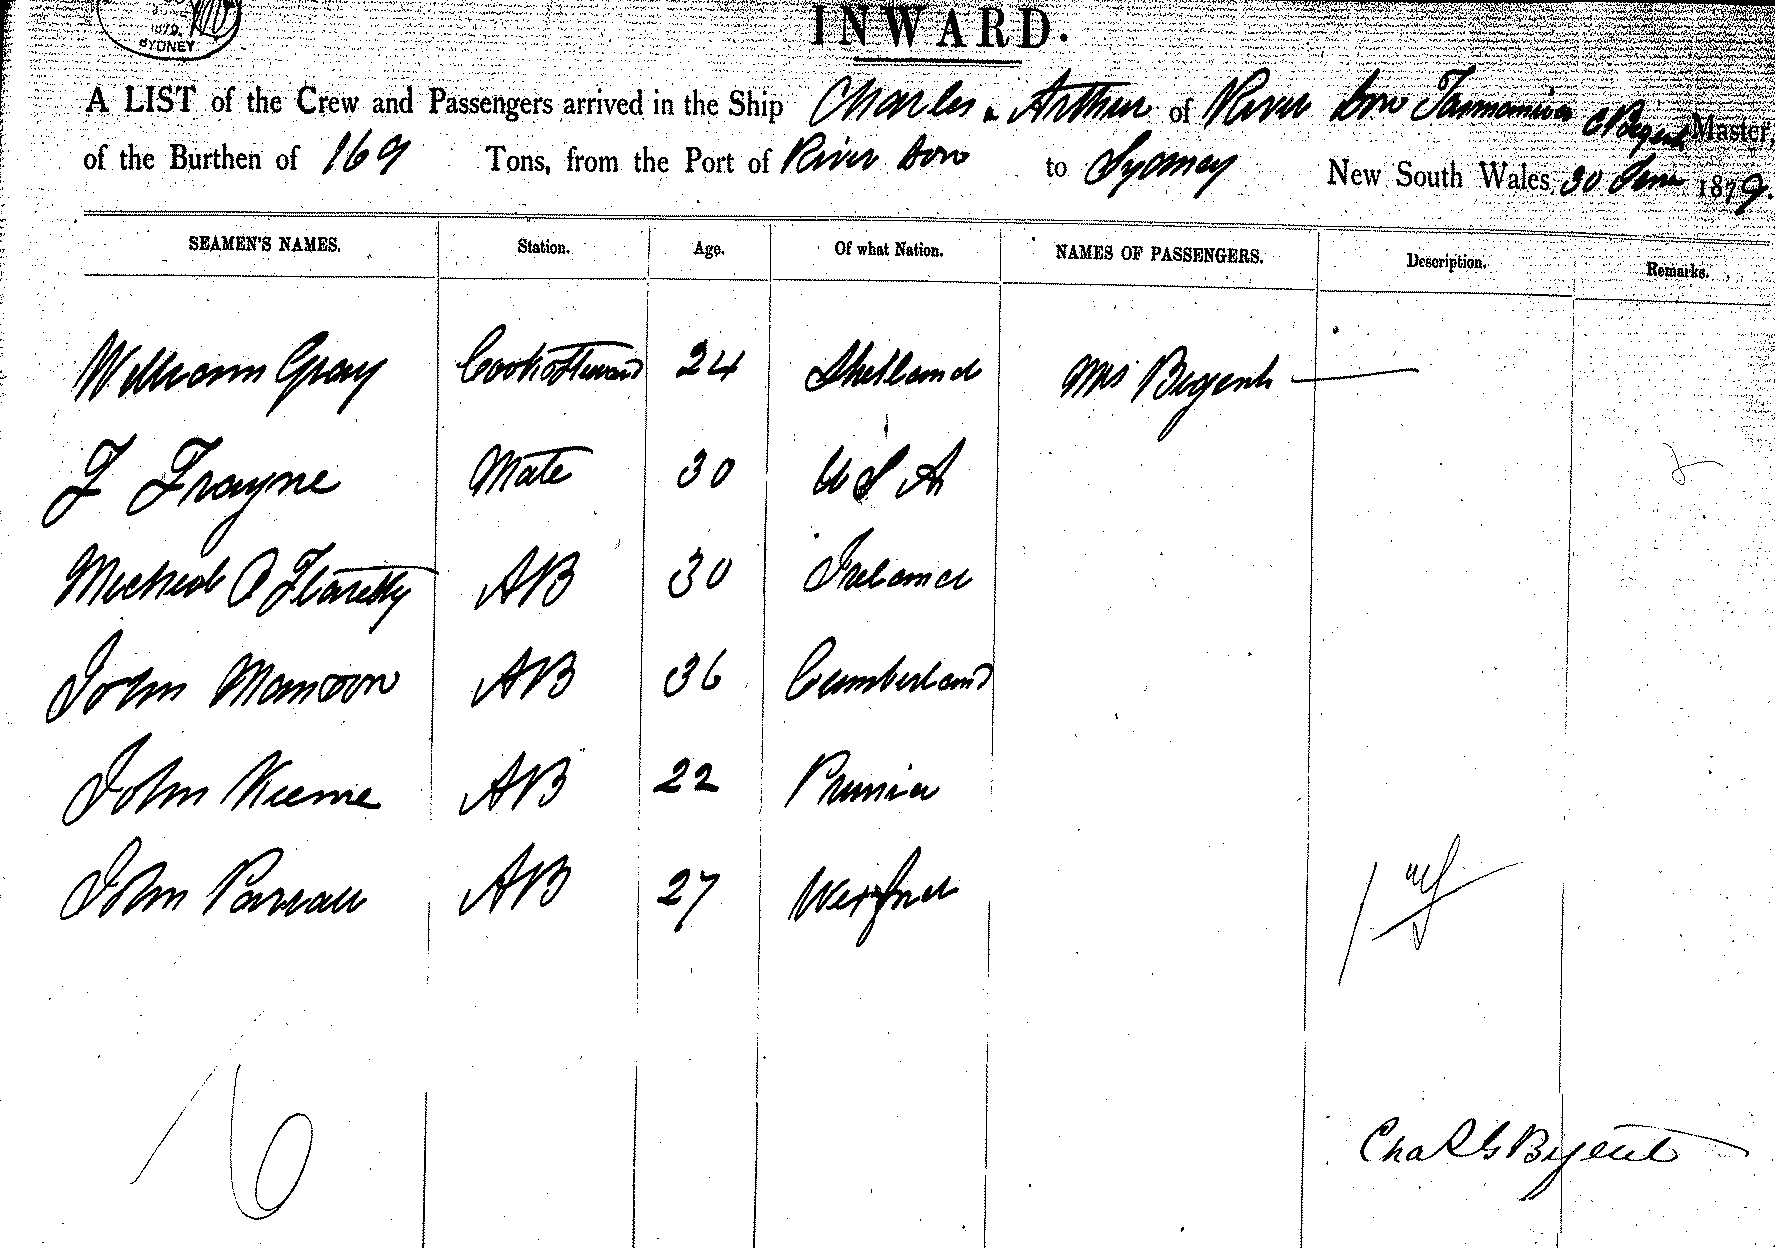 1879.
SYDNEY
INWARD.
A LIST of the Crew and Passengers arrived in the Ship Charles & Arthur of River Don Tasmania C Bygent Master,
of the Burthen of 169 Tons, from the Port of River Don to Sydney New South Wales, 30 June 1879.
SEAMEN'S NAMES. Station. Age. Of what Nation. NAMES OF PASSENGERS. Description. Remarks.
William Gray Cook & Steward 24 Shetland Mrs Bygent —
F Frayne Mate 30 U S A
Micheal O Flaretty AB 30 Ireland
John AB 36 Cumberland
John AB 22 Prussia
John AB 27 Wexford
1
6
Chas G Bygent